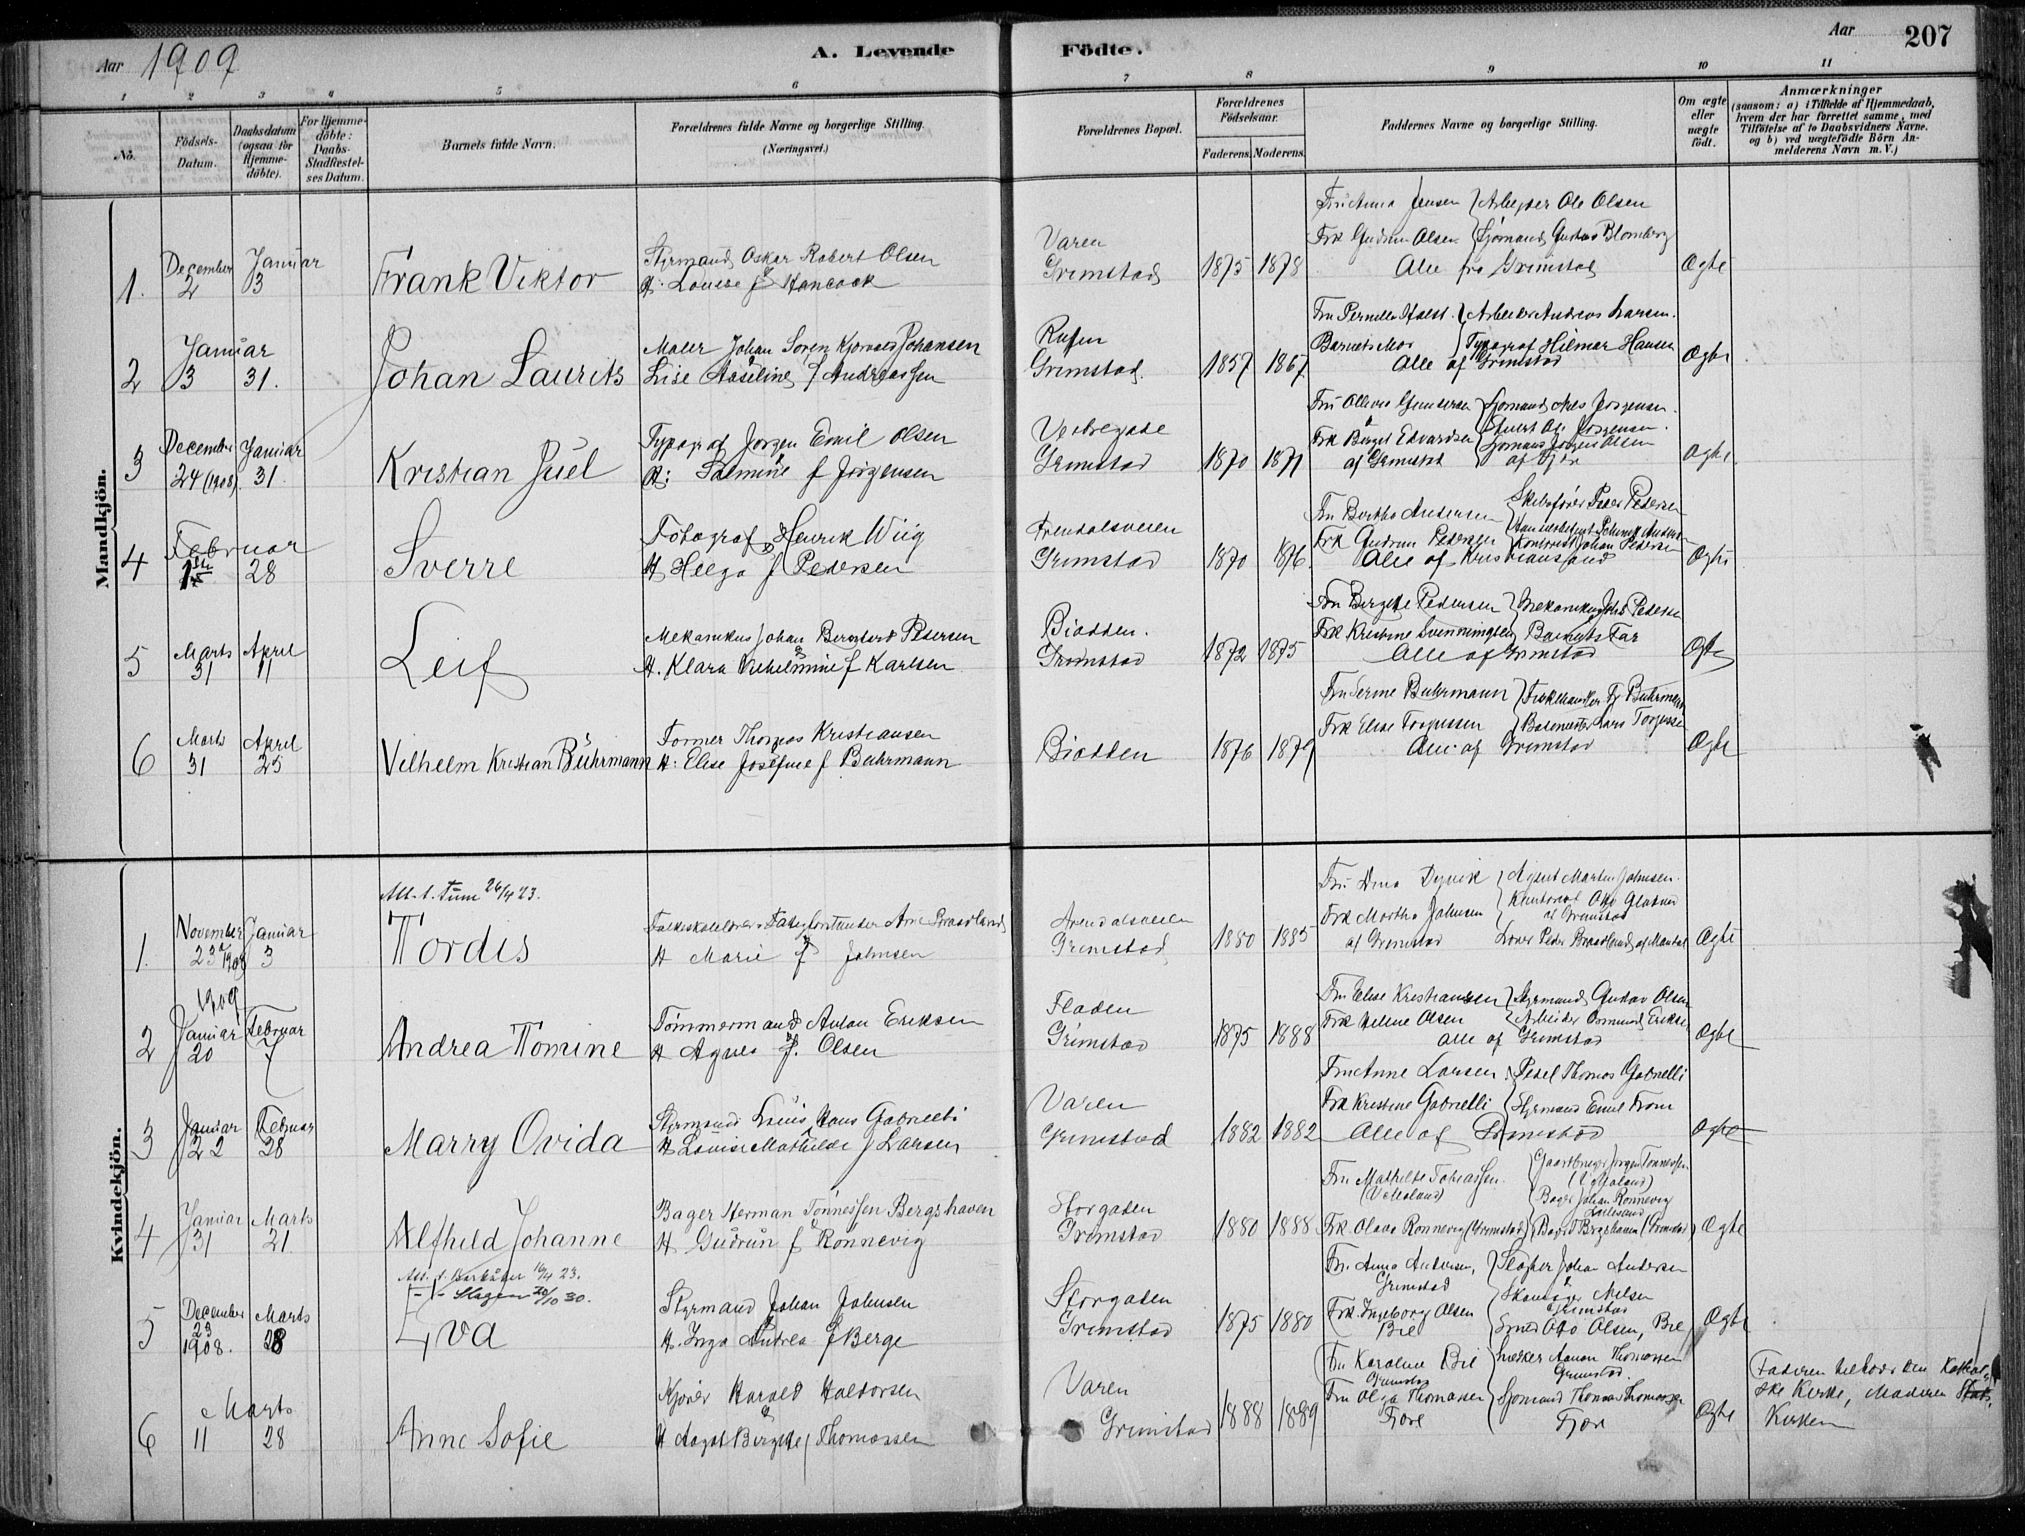 Aar 1909
A. Levende Födte.
Aar 207
1 2 3 4 5 6 7 8 9 10 11
No.
Födsels-Datum.
Daabsdatum (ogsaa for Hjemme-döbte).
For Hjemme-döbte: Daabs-Stadfæstel-ses Datum.
Barnets fulde Navn.
Forældrenes fulde Navne og borgerlige Stilling. (Næringsvei.)
Forældrenes Bopæl.
Forældrenes Födselsaar.
Faderens. Moderens.
Faddernes Navne og borgerlige Stilling.
Om ægte eller uægte födt.
Anmærkninger
(saasom: a) i Tilfælde af Hjemmedaab, hvem der har forrettet samme, med Tilföielse af to Daabsvidners Navne. og b) ved uægtefödte Börn An-melderens Navn m. V.)
Mandkjön.
Fru Anna Jensen Arbeyder Ole Olsen
Varen Frk Gudrun Olsen Sjømand Gustav Blomberg
December Januar Styrmand Oskar Robert Olsen
1. 2 3 Frank Viktor H. Louise f Hancock Grimstad 1875 1878 Alle fra Grimstad Ægte
Januar Maler Johan Soren Kjorvald Johansen Arbeider Andreas Larsen.
2 3 31. Johan Laurits Lise Aaseline f Andreassen Grimstad. 1857 1867. Barnets Mor Typograf Hilmar Hansen
Alle af Grimstad Ægte
December Januar Typograf Jorgen Emil Olsen Vestregade
3 24 (1908). 31. Kristian Juel H: f Jörgensen Grimstad 1870 1871 Frk Birgit Edvardsen
af Grimstad af Fjære Ægte.
Februar Fotograf Henrik Wiig Arendalsveien Fru Bertha Andersen Skibsfører Peder Pedersen
4 28 Sverre H Helga f Pedersen Grimstad 1870 1876. Frk Gudrun Pedersen Kontorist Johan Pedersen
Alle af Kristianssand Ægte
Marts April Mekanikus Johan Bernhard Petersen Biodden. Fru Birgitte Pedersen
5 31 11 Leif H. Klara Vilhelmine f Karlsen Grimstad 1872 1875 Frk Kristine Svenningsen Barnets Far
Alle af Grimstad Ægte
Marts April Former Thomas Kristiansen Buhrmann
6 31 25 Vilhelm Kristian Bührmann H: Elise Josefine f Buhrmann Biodden 1876 1879 Frk Elise Torjussen Lars Torjussen
Alle af Grimstad Ægte
Kvindekjön.
Att. t. Tum 26/4 23.
November Januar Arne Braadland Arendalsveien Agent Martin Johnsen
1. 23 1908 3 Tordis H Marie f Johnsen Grimstad 1880 1885 Frk Martha Johnsen
af Grimstad Lærer Peder Braadland af Mandal Ægte
1909
Januar Februar Tömmermand Anton Eriksen Fladen Fru Elise Kristiansen Styrmand Gustav Olsen
2 20 7 Andrea Tomine H Agnes f. Olsen Grimstad 1875 1888 Frk Helene Olsen Arbeider Osmund Eriksen
alle af Grimstad Ægte
Januar Februar Styrmand Louis Hans Gabrielli Varen Fru Anne Larsen Pedel Thomas Gabrielli
3 22 28 Marry Ovida H Louise Mathilde f Larsen Grimstad 1882 1882 Frk Kristine Gabrielli Styrmand Emil From
Alle af Grimstad Ægte
Januar Marts Bager Herman Tönnessen Bergshaven Storgaden Fru Mathilde Tobiassen Gaardbruger Jörgen Tönnessen
4 31 21 Alfhild Johanne H Gudrun f Rönnevig Grimstad 1880 1888 Bager Johan Rönnevig Lillesand
Frk Olava Ronnevig (Grimstad) Bergshaven (Grimstad) Ægte
Att. t. 16/4 23.
-"- Slagen 20/10 30.
December Marts Styrmand Johan Johnsen Storgaden Fru Anna Andersen, Grimstad Johan Andersen
5 23 1908. 28 Eva H. Inga Andrea f Berge Grimstad 1875 1880 Frk Ingeborg Olsen Bie Skomager Nilsen Grimstad
Smed Otto Olsen, Bie Ægte
Marts Kjører Harald Haldorsen Varen Fru Karoline Bie Grimstad Thomassen Grimstad.
6 11 28 Anne Sofie H Aagot Birgitte f Thomassen Grimstad 1888 1889 Fru Olga Thomassen Fjære Sjømand Thomas Thomassen Fjære Ægte
Faderen tilhører den Katholske Kirke, Moderen Stats Kirken